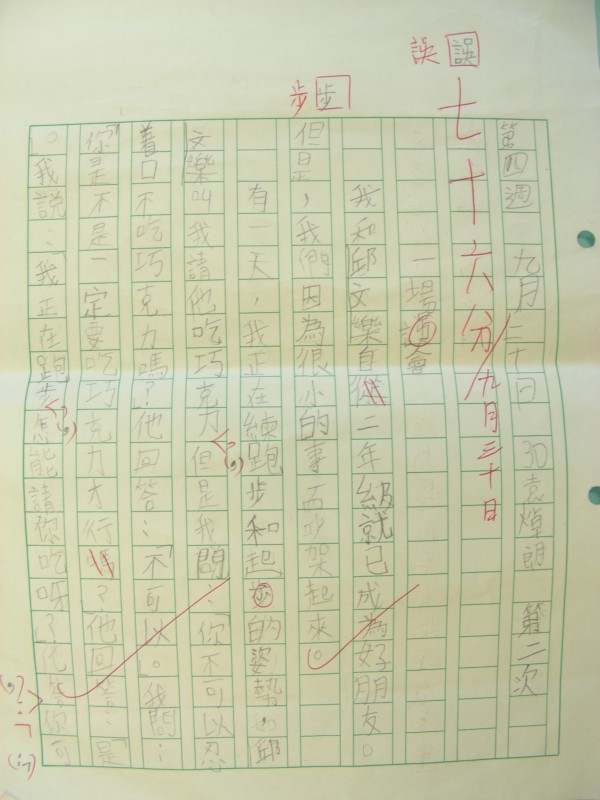 誤 誤
步 步
第四週 九月二十日 30袁焯朗 第二次
七十六分 九月三十日
一場誤會
我和邱文樂自從二年級就已成為好朋友。
但是，我們因為很小的事而吵架起來。
有一天，我正在練跑步和起步的姿勢，邱
文樂叫我請他吃巧克力但是我問：「你不可以忍
着口不吃巧克力嗎？」他回答：「不可以。」我問：
「你是不是一定要吃巧克力才行嗎？」他回答：「是
。」我說：「我正在跑步怎能請你吃呀？」他答你可